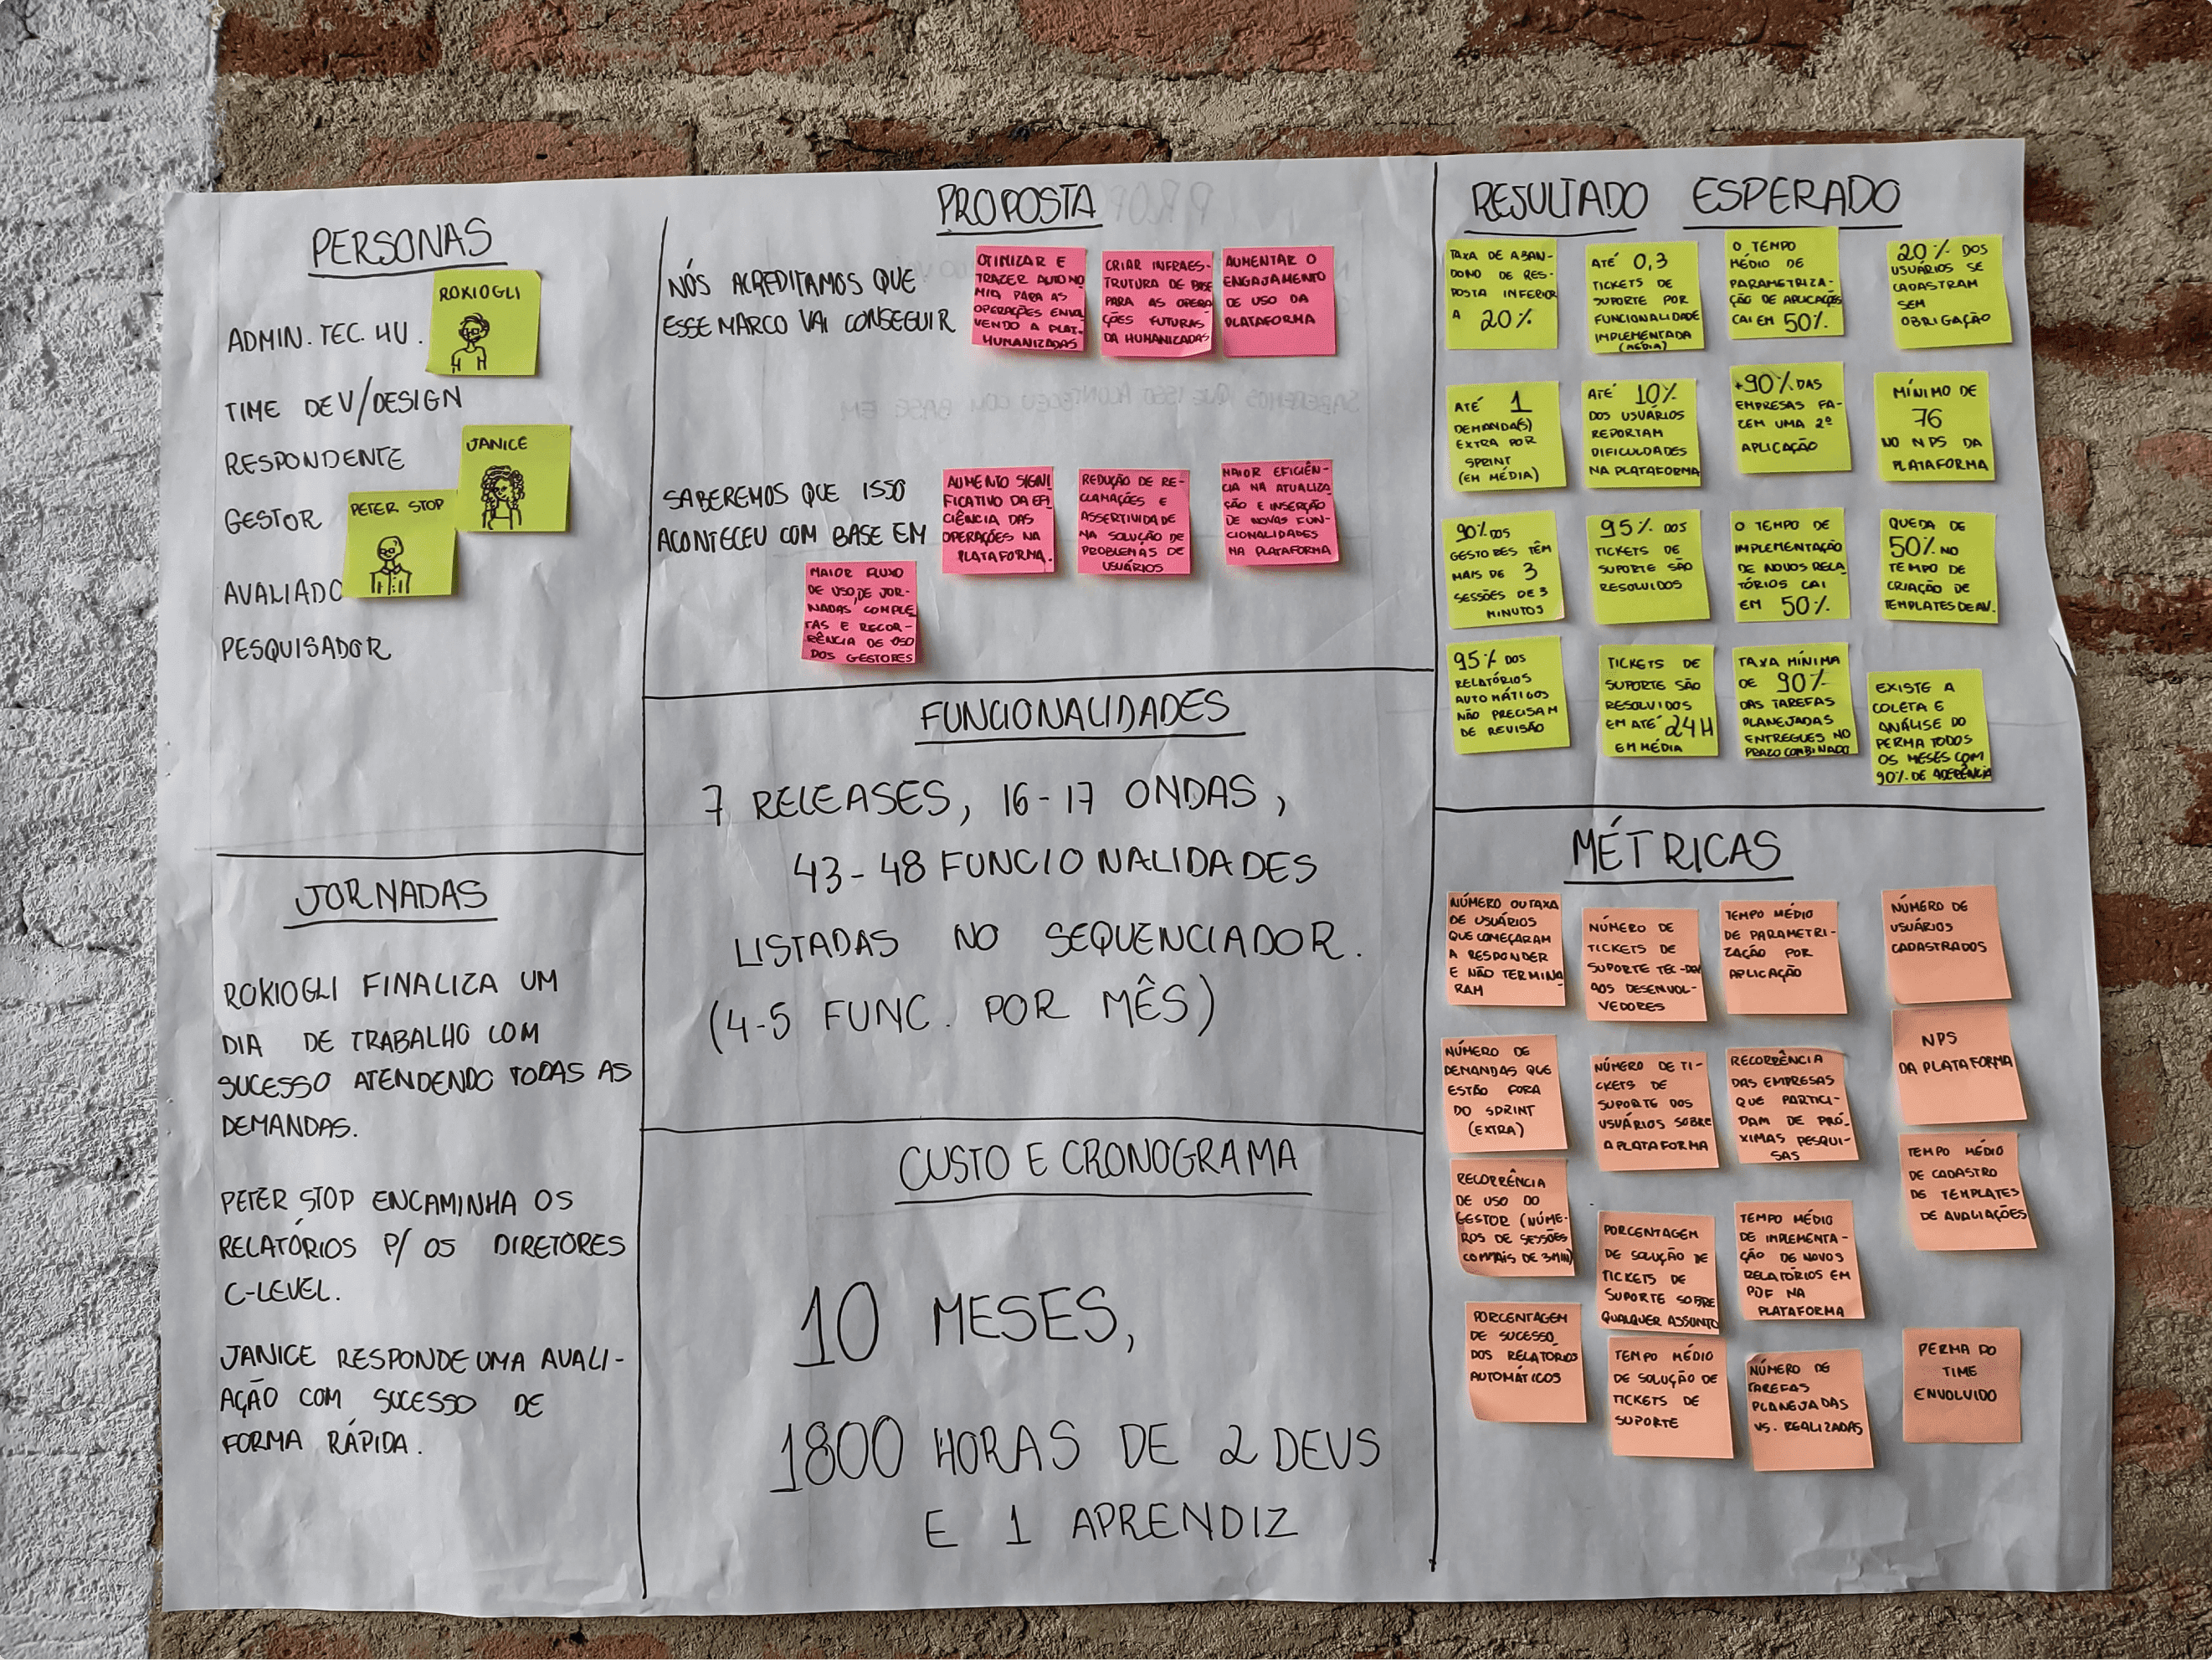 PERSONAS
ADMIN. TEC. HU.
ROKIOGLI
TIME DEV/DESIGN
RESPONDENTE
JANICE
GESTOR
PETER STOP
AVALIADO
PESQUISADOR
JORNADAS
ROKIOGLI FINALIZA UM
DIA DE TRABALHO COM
SUCESSO ATENDENDO TODAS AS
DEMANDAS.
PETER STOP ENCAMINHA OS
RELATÓRIOS P/ OS DIRETORES
C-LEVEL.
JANICE RESPONDE UMA AVALI-
AÇÃO COM SUCESSO DE
FORMA RÁPIDA.
PROPOSTA
NÓS ACREDITAMOS QUE
ESSE MARCO VAI CONSEGUIR
OTIMIZAR E
TRAZER AUTONO
MIA PARA AS
OPERAÇÕES ENVOL
VENDO A PLAT.
HUMANIZADAS
CRIAR INFRAES-
TRUTURA DE BASE
PARA AS OPERA
ÇÕES FUTURAS
DA HUMANIZADAS
AUMENTAR O
ENGAJAMENTO
DE USO DA
PLATAFORMA
SABEREMOS QUE ISSO
ACONTECEU COM BASE EM
AUMENTO SIGNI
FICATIVO DA EFI
CIÊNCIA DAS
OPERAÇÕES NA
PLATAFORMA.
REDUÇÃO DE RE-
CLAMAÇÕES E
ASSERTIVIDADE
NA SOLUÇÃO DE
PROBLEMAS DE
USUÁRIOS
MAIOR EFICIÊN-
CIA NA ATUALIZA
ÇÃO E INSERÇÃO
DE NOVAS FUN-
CIONALIDADES
NA PLATAFORMA
MAIOR FLUXO
DE USO, DE JOR-
NADAS COMPLE
TAS E RECOR-
RÊNCIA DE USO
DOS GESTORES
FUNCIONALIDADES
7 RELEASES, 16-17 ONDAS,
43-48 FUNCIONALIDADES
LISTADAS NO SEQUENCIADOR.
(4-5 FUNC. POR MÊS)
CUSTO E CRONOGRAMA
10 MESES,
1800 HORAS DE 2 DEVS
E 1 APRENDIZ
RESULTADO ESPERADO
TAXA DE ABAN-
DONO DE RES-
POSTA INFERIOR
A 20%
ATÉ 0,3
TICKETS DE
SUPORTE POR
FUNCIONALIDADE
IMPLEMENTADA
(MÉDIA)
O TEMPO
MÉDIO DE
PARAMETRIZA-
ÇÃO DE APLICAÇÕES
CAI EM 50%
20% DOS
USUÁRIOS SE
CADASTRAM
SEM
OBRIGAÇÃO
ATÉ 1
DEMANDA(S)
EXTRA POR
SPRINT
(EM MÉDIA)
ATÉ 10%
DOS USUÁRIOS
REPORTAM
DIFICULDADES
NA PLATAFORMA
+90% DAS
EMPRESAS FA-
ZEM UMA 2ª
APLICAÇÃO
MÍNIMO DE
76
NO NPS DA
PLATAFORMA
90% DOS
GESTORES TÊM
MAIS DE 3
SESSÕES DE 3
MINUTOS
95% DOS
TICKETS DE
SUPORTE SÃO
RESOLVIDOS
O TEMPO DE
IMPLEMENTAÇÃO
DE NOVOS RELA
TÓRIOS CAI
EM 50%
QUEDA DE
50% NO
TEMPO DE
CRIAÇÃO DE
TEMPLATES DE AV.
95% DOS
RELATÓRIOS
AUTOMÁTICOS
NÃO PRECISAM
DE REVISÃO
TICKETS DE
SUPORTE SÃO
RESOLVIDOS
EM ATÉ 24H
EM MÉDIA
TAXA MÍNIMA
DE 90%
DAS TAREFAS
PLANEJADAS
ENTREGUES NO
PRAZO COMBINADO
EXISTE A
COLETA E
ANÁLISE DO
PERMA TODOS
OS MESES COM
90% DE ADERÊNCIA
MÉTRICAS
NÚMERO OU TAXA
DE USUÁRIOS
QUE COMEÇARAM
A RESPONDER
E NÃO TERMINA
RAM
NÚMERO DE
TICKETS DE
SUPORTE TEC-DEV
AOS DESENVOL-
VEDORES
TEMPO MÉDIO
DE PARAMETRI-
ZAÇÃO POR
APLICAÇÃO
NÚMERO DE
USUÁRIOS
CADASTRADOS
NÚMERO DE
DEMANDAS QUE
ESTÃO FORA
DO SPRINT
(EXTRA)
NÚMERO DE TI-
CKETS DE
SUPORTE DOS
USUÁRIOS SOBRE
A PLATAFORMA
RECORRÊNCIA
DAS EMPRESAS
QUE PARTICI-
PAM DE PRÓ-
XIMAS PESQUI-
SAS
NPS
DA PLATAFORMA
RECORRÊNCIA
DE USO DO
GESTOR (NÚME-
ROS DE SESSÕES
COM MAIS DE 3 MIN)
PORCENTAGEM
DE SOLUÇÃO DE
TICKETS DE
SUPORTE SOBRE
QUALQUER ASSUNTO
TEMPO MÉDIO
DE IMPLEMENTA-
ÇÃO DE NOVOS
RELATÓRIOS EM
PDF NA
PLATAFORMA
TEMPO MÉDIO
DE CADASTRO
DE TEMPLATES
DE AVALIAÇÕES
PORCENTAGEM
DE SUCESSO
DOS RELATÓRIOS
AUTOMÁTICOS
TEMPO MÉDIO
DE SOLUÇÃO DE
TICKETS DE
SUPORTE
NÚMERO DE
TAREFAS
PLANEJADAS
VS. REALIZADAS
PERMA DO
TIME
ENVOLVIDO